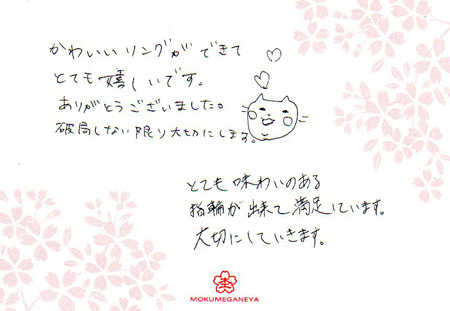 かわいいリングができて
とても嬉しいです。
ありがとうございました。
破局しない限り大切にします。
とても味わいのある
指輪が出来て満足しています。
大切にしていきます。
MOKUMEGANEYA